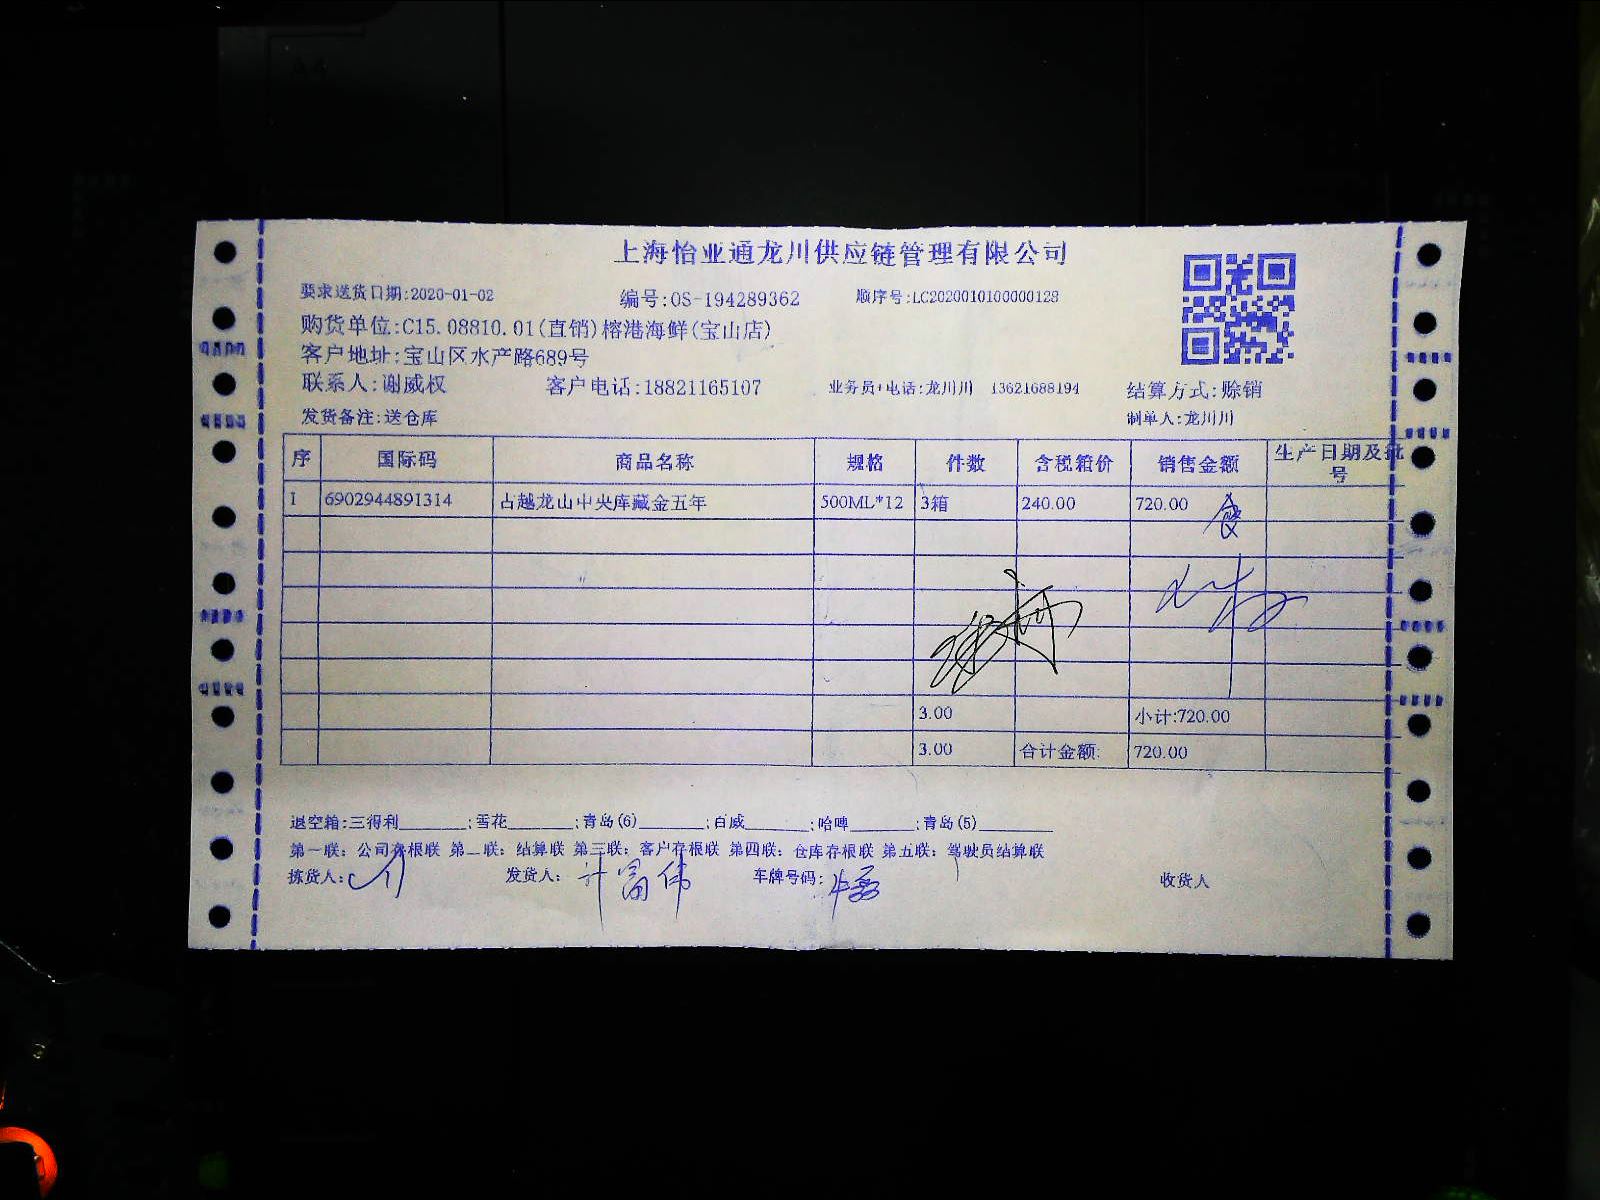 上海怡亚通龙川供应链管理有限公司
要求送货日期:2020-01-02 编号:OS-194289362 顺序号:LC2020010100000128
购货单位:C15.08810.01(直销)榕港海鲜(宝山店)
客户地址:宝山区水产路689号
联系人:谢威权 客户电话:18821165107 业务员+电话:龙川川 13621688194 结算方式:赊销
发货备注:送仓库 制单人:龙川川
序 国际码 商品名称 规格 件数 含税箱价 销售金额 生产日期及批号
1 6902944891314 古越龙山中央库藏金五年 500ML*12 3箱 240.00 720.00
3.00 小计:720.00
3.00 合计金额: 720.00
退空箱:三得利_______;雪花_______;青岛(6)_______;百威_______;哈啤_______;青岛(5)________
第一联：公司存根联 第二联：结算联 第三联：客户存根联 第四联：仓库存根联 第五联：驾驶员结算联
拣货人: 发货人: 计富伟 车牌号码: 收货人